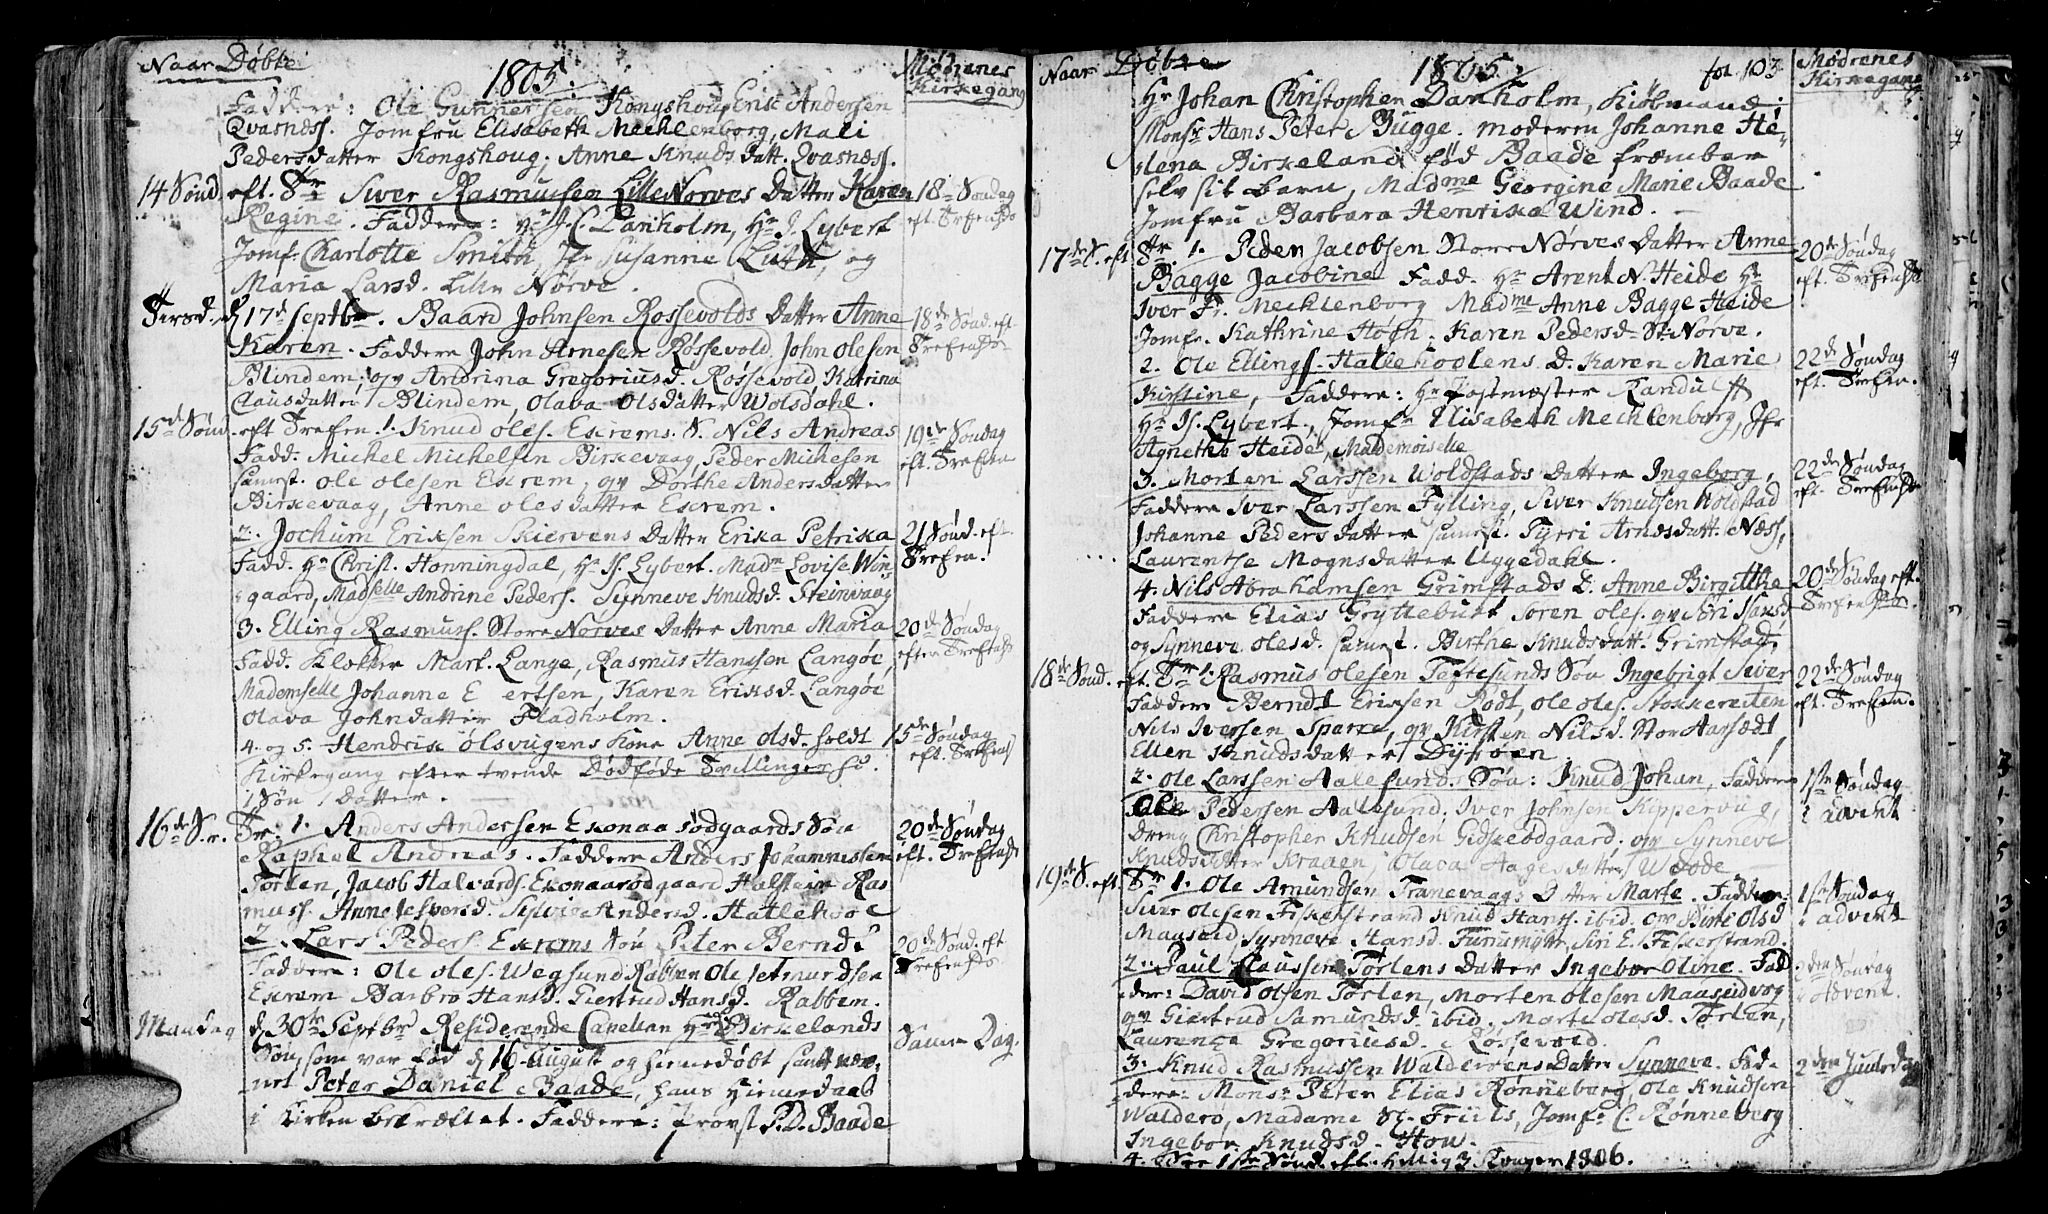 Naar Døbte
1805.
Mødrenes
Kirkegang
Faddere: Ole Gunnersen Kongshoug Erik Andersen
Qvasness. Jomfru Elisabeth Mechlenborg, Mali
Pedersdatter Kongshoug, Anne Knuds Datt. Qvasness.
14 Sønd. eft. Tr. Siver Rasmussen Lille Nørves Datter Karen
Regine. Faddere: J. C. Danholm, Hr J. Lybert
Jomf. Charlotte Smith, Jfr Susanne Luth, og
Maria Larsd. Lille Nørve.
18de Søndag
eft. Trefoldh.
Tirsd. d 17d Septbr. Baard Johnsen Røssevolds Datter Anne
Karen. Faddere John Arnesen Røssevold, John Olesen
Blindem, qv Andrina Gregoriusd. Røssevold, Katrina
Clausdatter Blindem, Olava Olsdatter Wolsdahl.
18de Sønd. eft.
15d Sønd. eft Trefen. 1. Knud Oles. Exrems S. Nils Andreas
Fadd: Michel Michelsen Birkevaag, Peder Michelsen
samest. Ole Olesen Exrem, qv Dorthe Andersdatter
Birkevaag, Anne Olesdatter Exrem.
19de Søndag
eft. Trefen
2. Jochum Eriksen Skiervens Datter Erika Petrika
Fadd. Hr Christ. Honningdal, Hr Js. Lybert. Madm Lovise Win-
gaard, Madselle Andrine Peders. Synneve Knudsd. Steinvaag
21 Sønd. eft.
Trefen.
3. Elling Rasmuss. Store Nørves Datter Anne Maria
Fadd. Klokker Mark. Lange, Rasmus Hanssen Langøe,
Mademselle Johanne Evertsen, Karen Eriksd. Langøe
Olava Johndatter Fladholm.
20de Søndag
4. og 5. Hendrik Olsvigens Kone Anne Olsd. holdt
Kirkegang efter tvende Dødføde Tvillinger
1 Søn 1 Datter.
15de Søndag
16de S. e. Tr. 1. Anders Andersen Exonaa Sødgaards Søn
Raphel Andreas. Faddere Anders Johannessen
Torlen, Jacob Halvards. Exonaasødgaard Halstein Ras
muss. Anne Jespersd. Sylvie Andersd. Hatlehoe
20de Søndag
2. Lars Peders. Exrems Søn Peter Berndt
Faddere: Ole Oles. Wegsund Rabben Ole Setmundsen
Exrem Barbro Hansd. Giertrud Hansd. Rabben.
20de Sønd. eft
Mandag d 30te Septbr Residerende Capellan Hr Birkelands
Søn, som var fød d 16 August og hiemmedøbt samt næv-
net Peter Daniel Baade, hans Hiemedaab
i Kirken bekræftet. Faddere: Provst P. D. Baade
Samme Dag.
Naar Døbte
1805
fol. 103
Mødrenes
Kirkegang
Hr Johan Christopher Danholm, Kiøbmand
Monsr Hans Peter Bugge. moderen Johanne He-
lena Birkeland fød Baade frembar
selv sit barn, Madme Georgine Marie Baade
Jomfru Barbara Henrika Wind.
17de S. eft Tr. 1. Peder Jacobsen Store Nørves Datter Anne
Bagge Jacobine Fadd. Hr Arent N. Heide Hr
Iver Fr. Mechlenborg Madme Anne Bagge Heide
Jomfr. Kathrine Høgh. Karen Pedersd. St. Nørve.
20de Søndag
2. Ole Ellings. Hatlehoolens D. Karen Marie
Kirstine, Faddere: Hr Postmæster Randulff
Hr Js. Lybert., Jomfr Elisabeth Mechlenborg, Jfr
Agnethe Heide, Mademoiselle
22de Søndag
eft. Trefen.
3. Morten Larssen Woldstads Datter Ingeborg,
Faddere Iver Larssen Fylling, Siver Knudsen Woldstad
Johanne Pedersdatter samest. Tyrri Arnesdatt. Næss,
Laurentse Mognsdatter Uggedahl.
22de Søndag
4. Nils Abrahamsen Grimstads D. Anne Birgitthe
Faddere Elias Gryttebust Søren Oles. qv Siri
og Synneve Olesd. samest. Birthe Knudsdatt. Grimstad,
20de Søndag eft.
18de Sønd. eft. Tr 1. Rasmus Olesen Teftesunds Søn Ingebrigt Siver
Faddere Berndt Eriksen Rødt, Ole Oles. Stokkereiten
Nils Iversen Sparre, qv Kirsten Nilsd. Stor Aarsædt,
Ellen Knudsdatter Dyrøen.
22de Søndag
eft. Trefen.
2. Ole Larssen Aalesunds. Søn: Knud Johan, Faddere
Ole Pedersen Aalesund, Iver Johnsen Kippervig,
dreng Christopher Knudsen Gidskeødgaard. qv Synneve
Knudsdatter Kraaen, Olava Aagesdatter Wedde
1ste Søndag
i advent
19de S. eft. Tr 1. Ole Amundsen Tranevaags Datter Marte. Faddere:
Siver Olesen Fiskerstrand Knud Hanss. ibid. qv Birte Olsd
Maaseid, Synneve Hansd. Furumyr, Siri E. Fiskerstrand.
1ste Søndag
i advent
2. Paul Claussen Torlens Datter Ingebor Oline. Fad
dere: David Olsen Torlen, Morten Olesen Maaseidvog
qv Giertrud Samundsd. ibid, Marte Olesd. Torlen,
Laurence Gregoriusd. Røssevold.
2den Søndag
i Advent.
3. Knud Rasmussen Walderøens Datter Synneve. Fad-
dere: Monsr Peter Elias Rønneberg, Ola Knudsen
Walderø, Madame Sl. Friils, Jomfr C. Rønneberg
Ingebor Knudsd. Hou.
2den Juuledag
4. See 1ste Sønd. eft. hellig 3 Konger 1806.